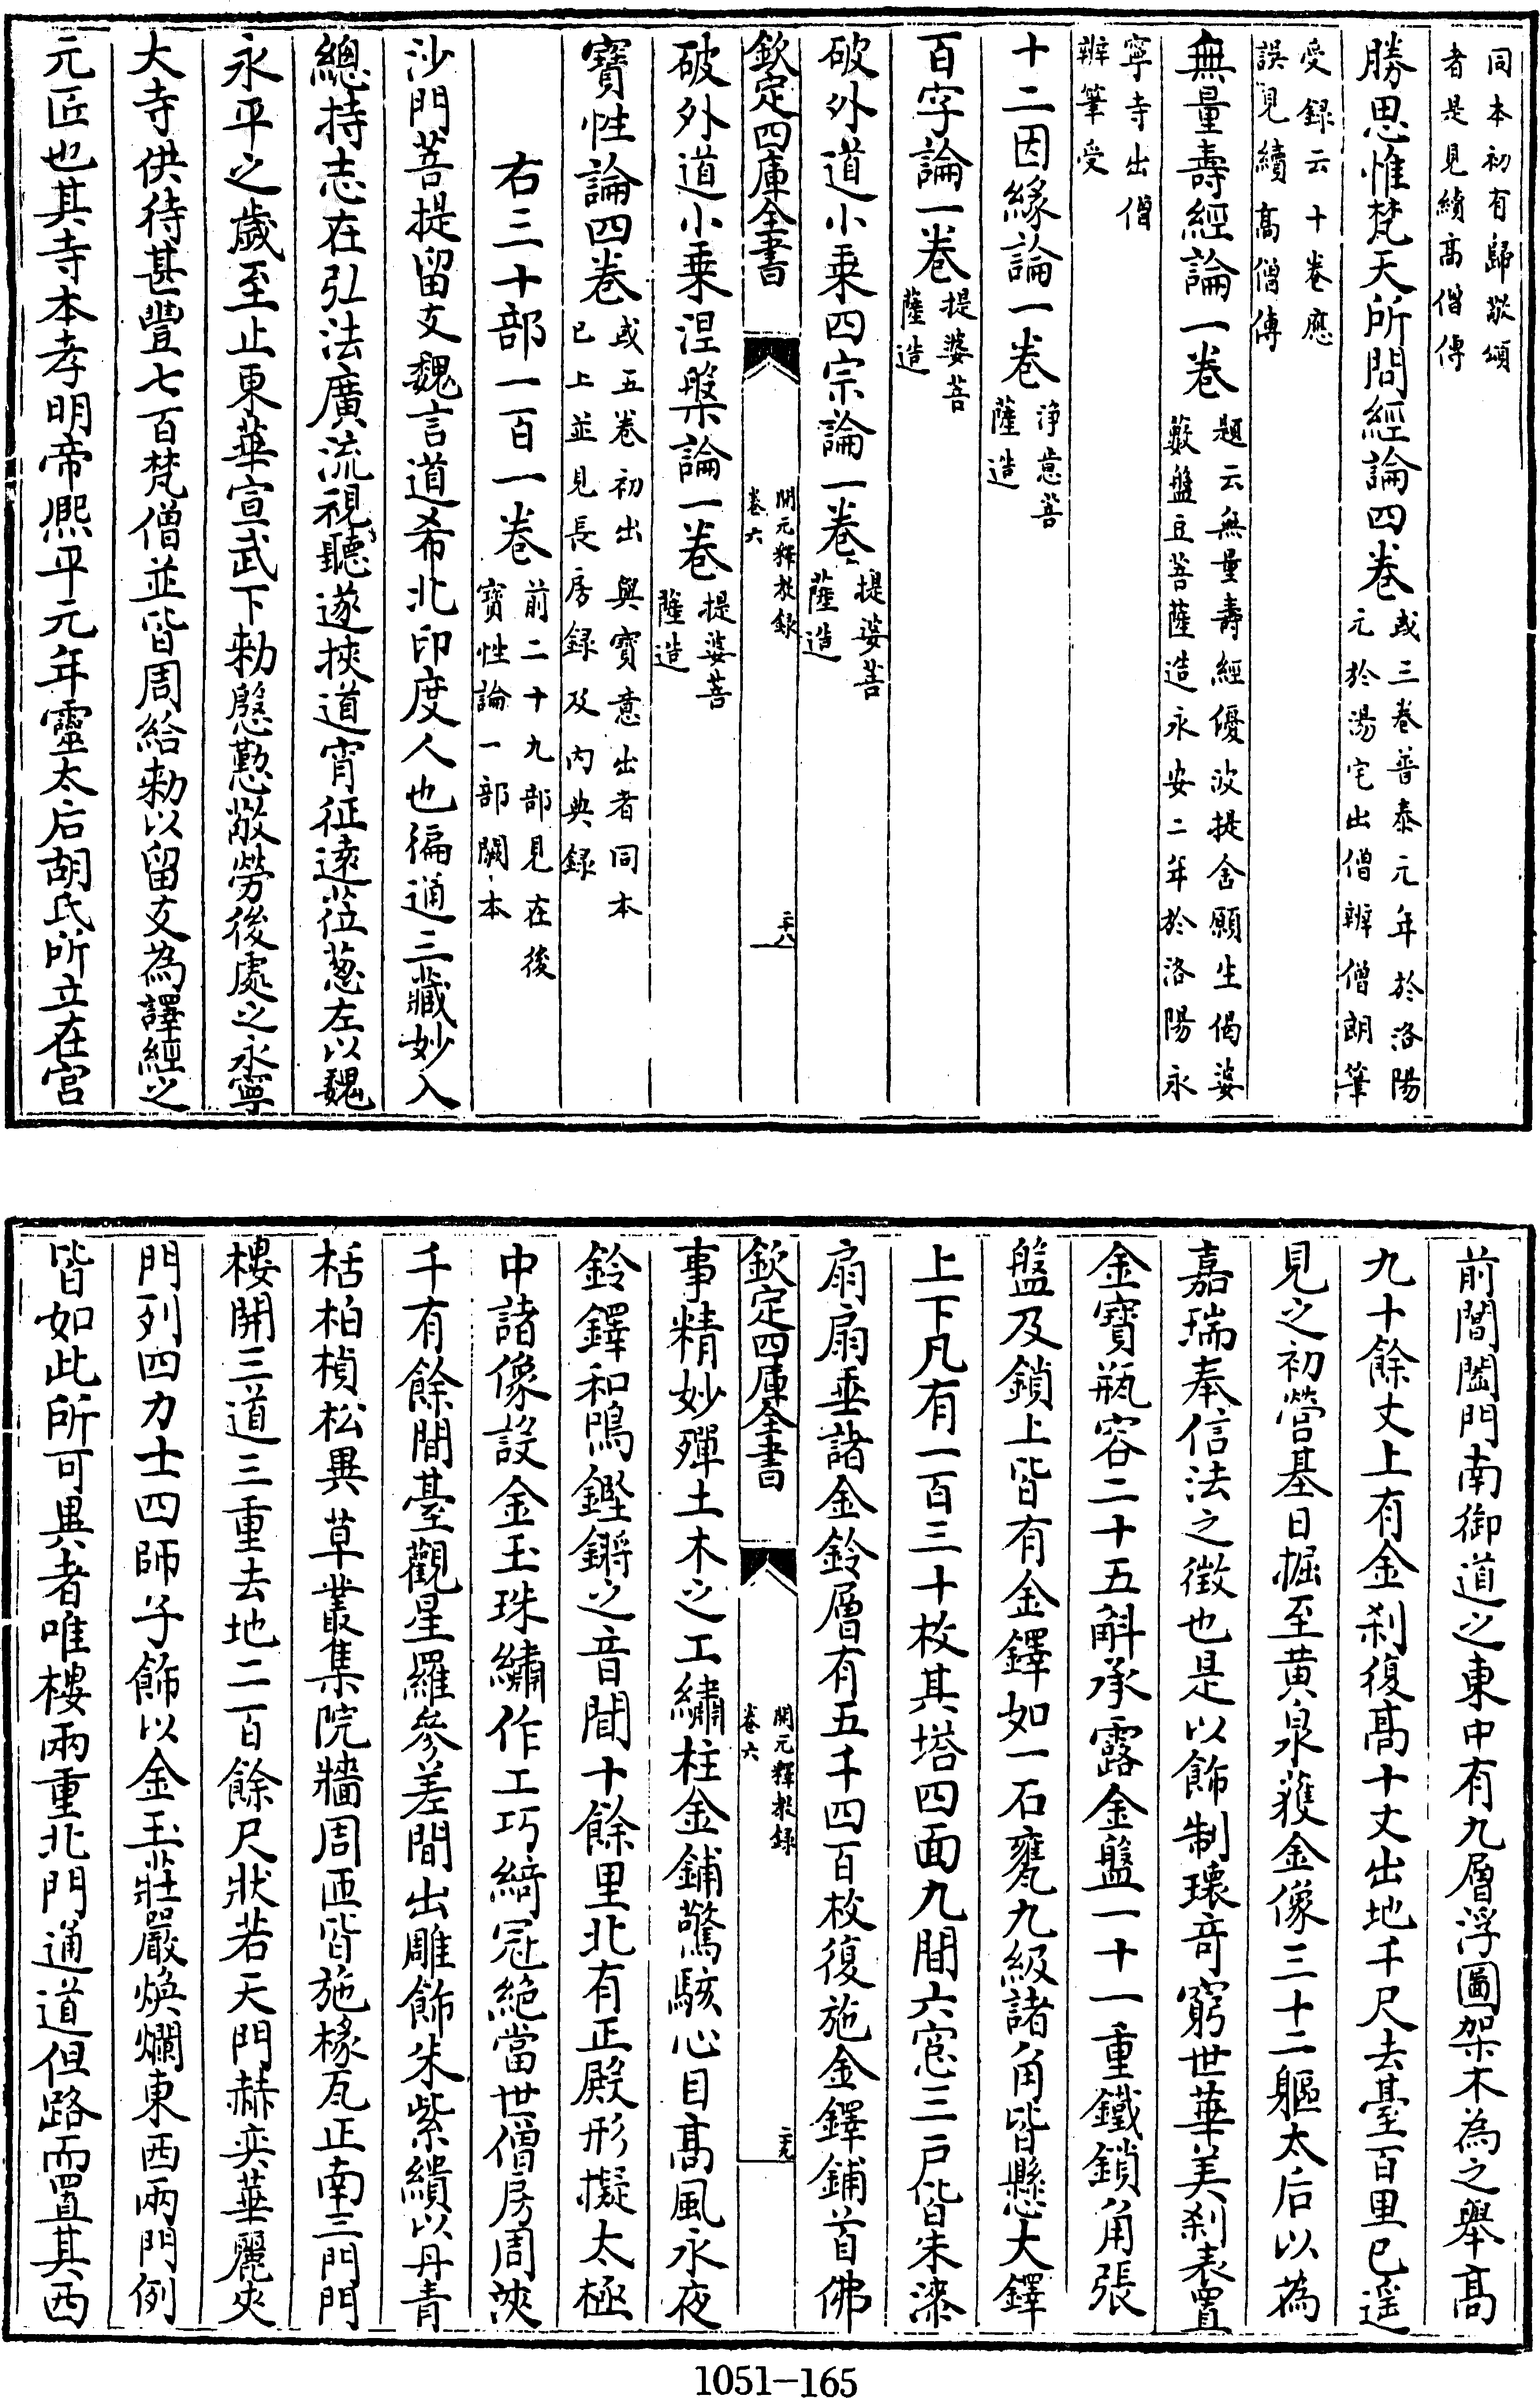 同本初有歸敬頌
者是見續高僧傳
勝思惟梵天所問經論四卷或三卷普泰元年於洛陽
元於湯宅出僧辨僧朗筆
受録云十卷應
誤見續高僧傳
無量壽經論一卷題云無量壽經優波提舍願生偈婆
藪盤豆菩薩造永安二年於洛陽永
寧寺出僧
辨筆受
十二因緣論一卷淨意菩
薩造
百字論一卷提婆菩
薩造
破外道小乗四宗論一卷提婆菩
薩造
欽定四庫全書
開元釋教録
卷六
二十八
破外道小乗涅槃論一卷提婆菩
薩造
寶性論四卷或五卷初出與寶意出者同本
已上並見長房録及内典録
右三十部一百一卷前二十九部見在後
寶性論一部闕本
沙門菩提留支魏言道希北印度人也徧通三藏妙入
總持志在弘法廣流視聽遂挾道宵征遠莅葱左以魏
永平之歲至止東華宣武下勅慇懃敬勞後處之永寧
大寺供待甚豐七百梵僧並皆周給勅以留支為譯經之
元匠也其寺本孝明帝熈平元年靈太后胡氏所立在宫
前閶闔門南御道之東中有九層浮圖架木為之舉髙
九十餘丈上有金刹復髙十丈出地千尺去臺百里已遥
見之初營基日掘至黄泉獲金像三十二軀太后以為
嘉瑞奉信法之徴也是以飾制瓌竒窮世華美刹表置
金寶瓶容二十五斛承露金盤一十一重鐵鎖角張
盤及鎖上皆有金鐸如一石甕九級諸角皆懸大鐸
上下凡有一百三十枚其塔四面九間六窓三户皆朱漆
扇扇垂諸金鈴層有五千四百枚復施金鐸鋪首佛
欽定四庫全書
開元釋教録
卷六
二十九
事精妙殫土木之工繡柱金鋪驚駭心目髙風永夜
鈴鐸和鳴鏗鏘之音聞十餘里北有正殿形擬太極
中諸像設金玉珠繡作工巧綺冠絶當世僧房周浹
千有餘間臺觀星羅參差間出雕飾朱紫繢以丹青
栝柏楨松異草叢集院牆周匝皆施椽瓦正南三門門
樓開三道三重去地二百餘尺狀若天門赫奕華麗夾
門列四力士四師子飾以金玉莊嚴煥爛東西兩門例
皆如此所可異者唯樓兩重北門通道但路而置其西
1051-165